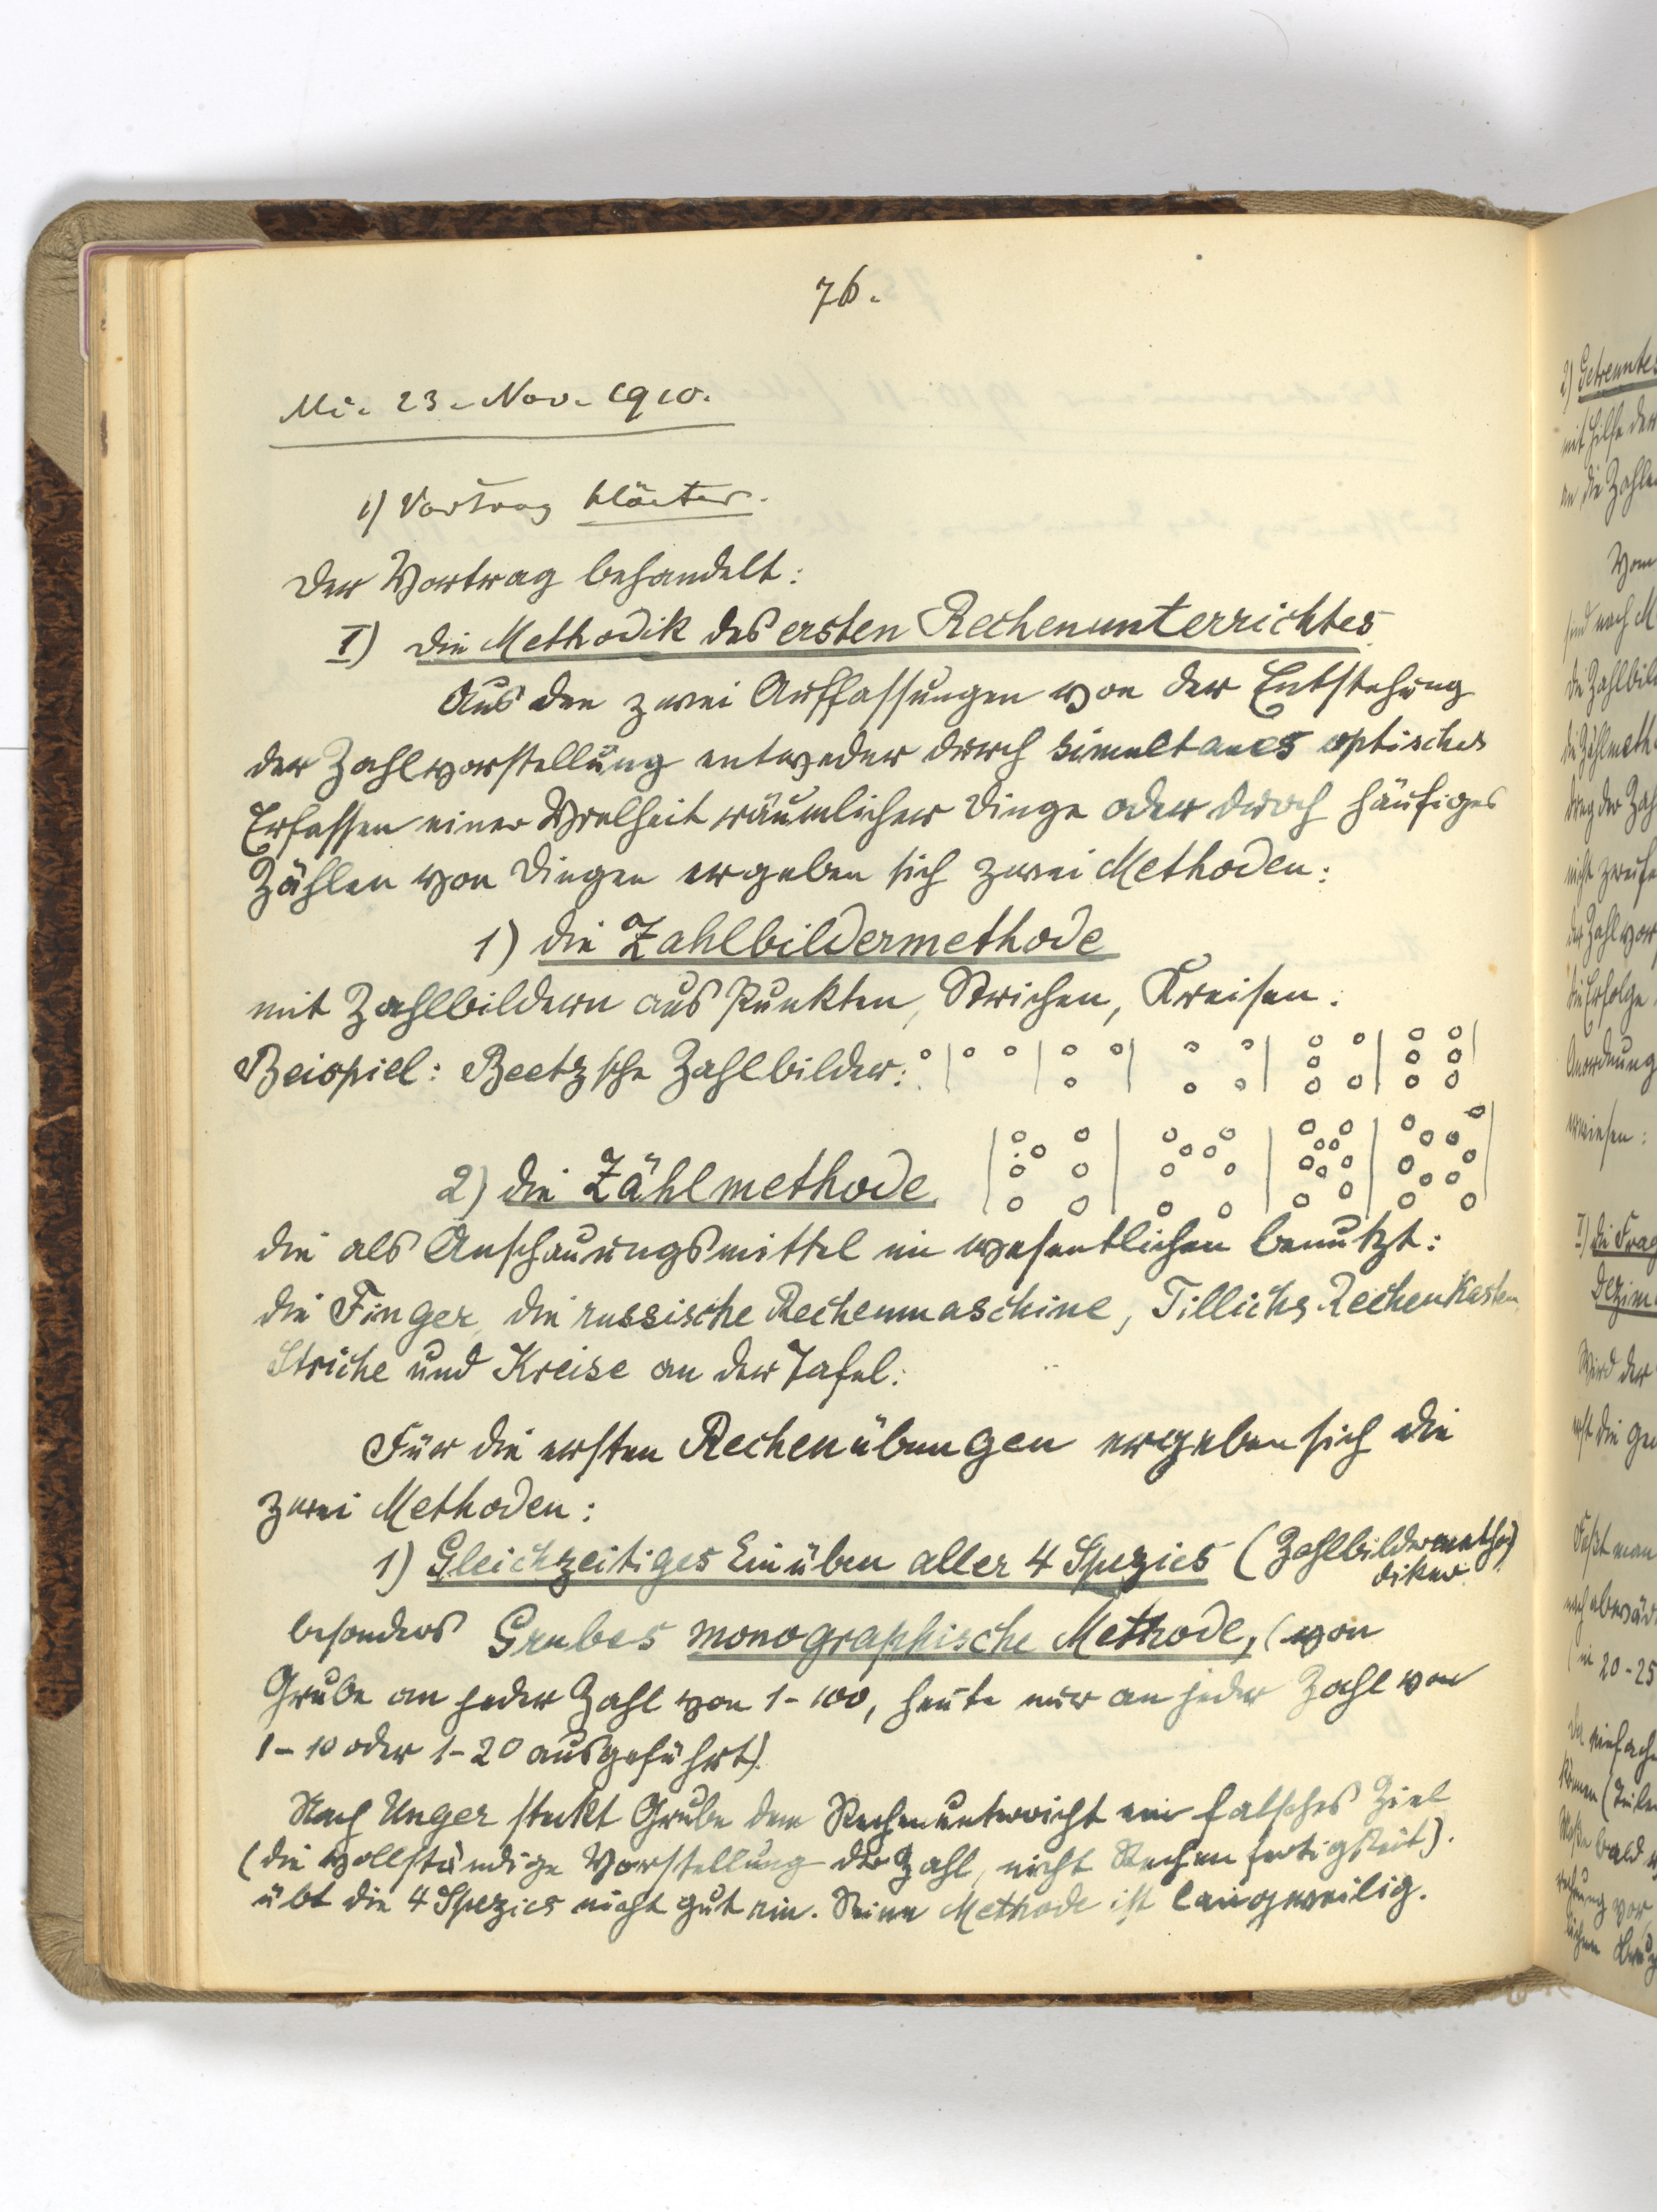 76.
Mi. 23. Nov. 1910.
1) Vortrag
Der Vortrag behandelt:
I) Die Methodik des ersten Rechenunterrichtes
Aus den zwei Auffassungen von der Entstehung
der Zahlvorstellung entweder durch simultanes optisches
Erfassen einer Vielheit räumlicher Dinge oder durch häufiges
Zählen von Dingen ergeben sich zwei Methoden:
1) die Zahlbildermethode
mit Zahlbildern aus Punkten, Strichen, Kreisen.
Beispiel: Beetzsche Zahlbilder:
2) die Zählmethode
die als Anschauungsmittel im wesentlichen benutzt:
die Finger, die russische Rechenmaschine, Tillichs Rechenkasten
Striche und Kreise an der Tafel.
Für die ersten Rechenübungen ergeben sich die
zwei Methoden:
1) Gleichzeitiges Einüben aller 4 Spezies (Zahlbildermetho-
diker)
besonders Grubes monographische Methode, (von
Grube an jeder Zahl von 1-100, heute nur an jeder Zahl von
1-10 oder 1-20 ausgeführt).
Nach Unger steckt Grube dem Rechenunterricht ein falsches Ziel
(die vollständige Vorstellung der Zahl, nicht Rechenfertigkeit).
übt die 4 Spezies nicht gut ein. Seine Methode ist langweilig.
2) Getrenntes
mit Hilfe der
an die Zahlen
Vom
sind nach M
die Zahlbil
die Zählmeth
der Zahlvor
die Erfolge
Anordnung
erwiesen:
die Frag
Dezim
Wird der
erst die
Faßt man
in 20-25
einfach
bald